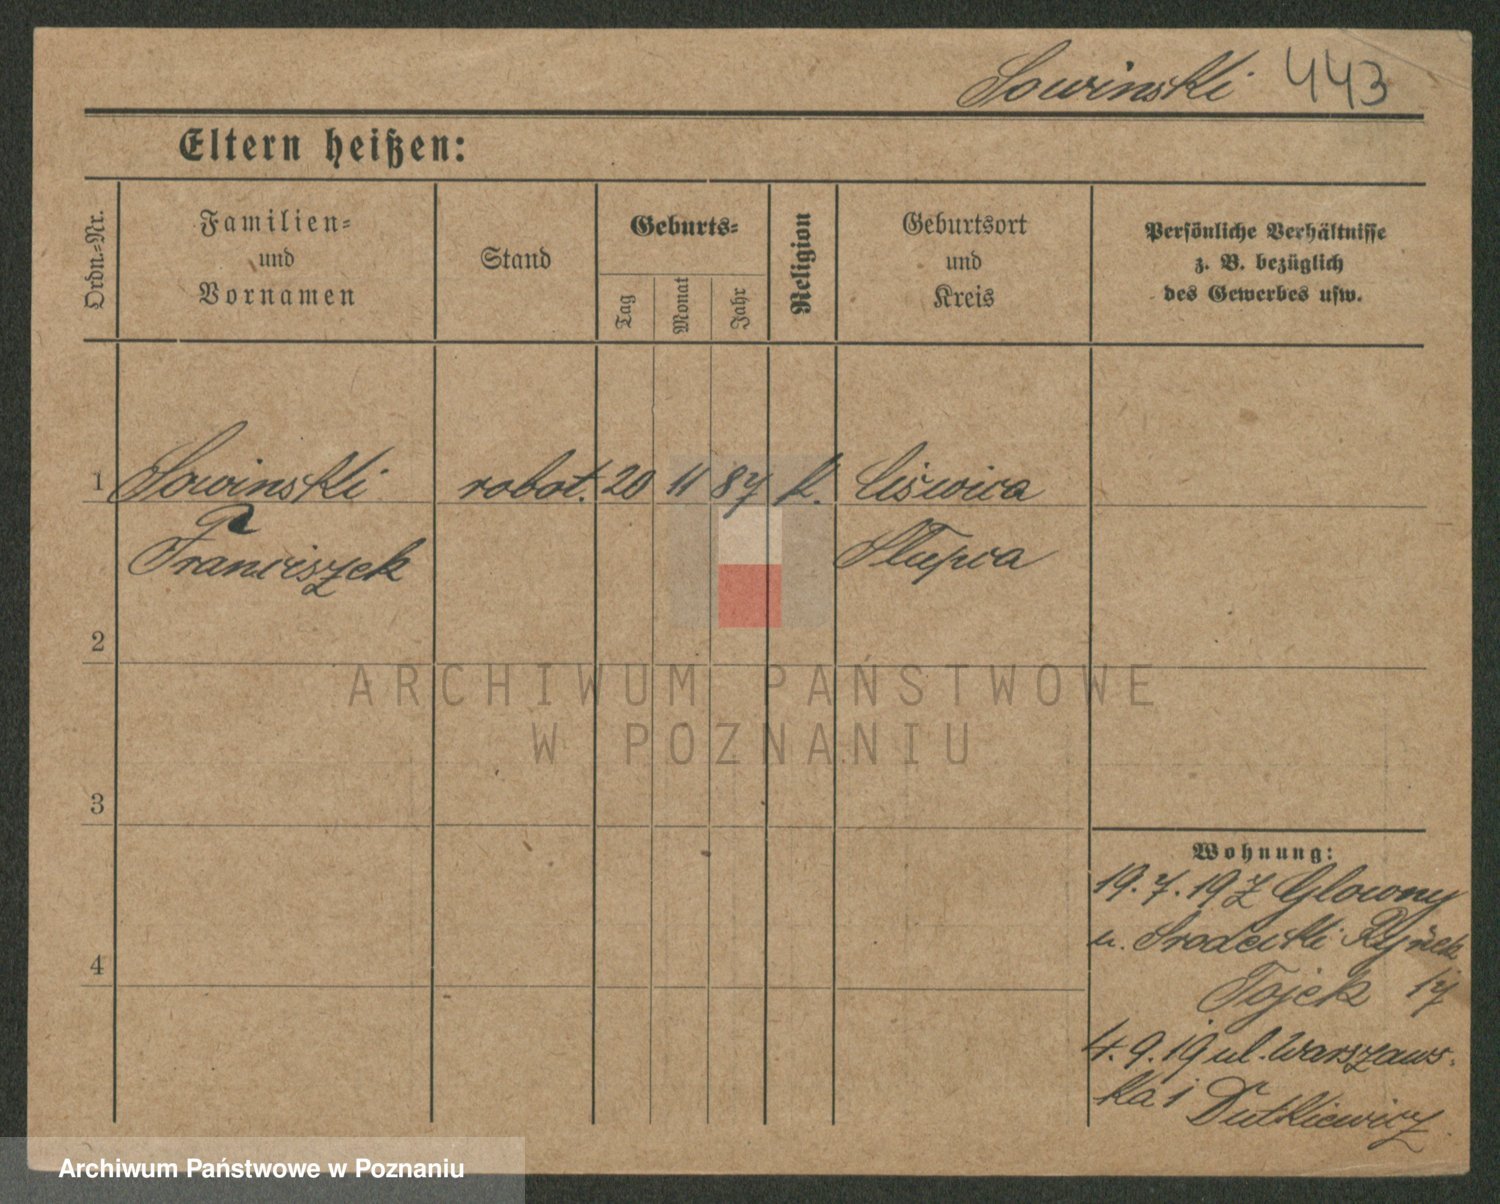 Sowinski 443
Eltern heißen:
Ordn.-Nr.
Familien-
und
Vornamen
Stand
Geburts-
Tag
Monat
Jahr
Religion
Geburtsort
und
Kreis
Persönliche Verhältnisse
z. B. bezüglich
des Gewerbes usw.
1 Sowinski robot. 20 11 87 k.
Franciszek Słupca
2
3
4
ARCHIWUM PAŃSTWOWE
W POZNANIU
Wohnung:
19.7.19 Z Glowny
u. Srodecki Rynek
Tojek 17
4.9.19 ul. Warszaws-
ka 1 Dutkiewicz
Archiwum Państwowe w Poznaniu